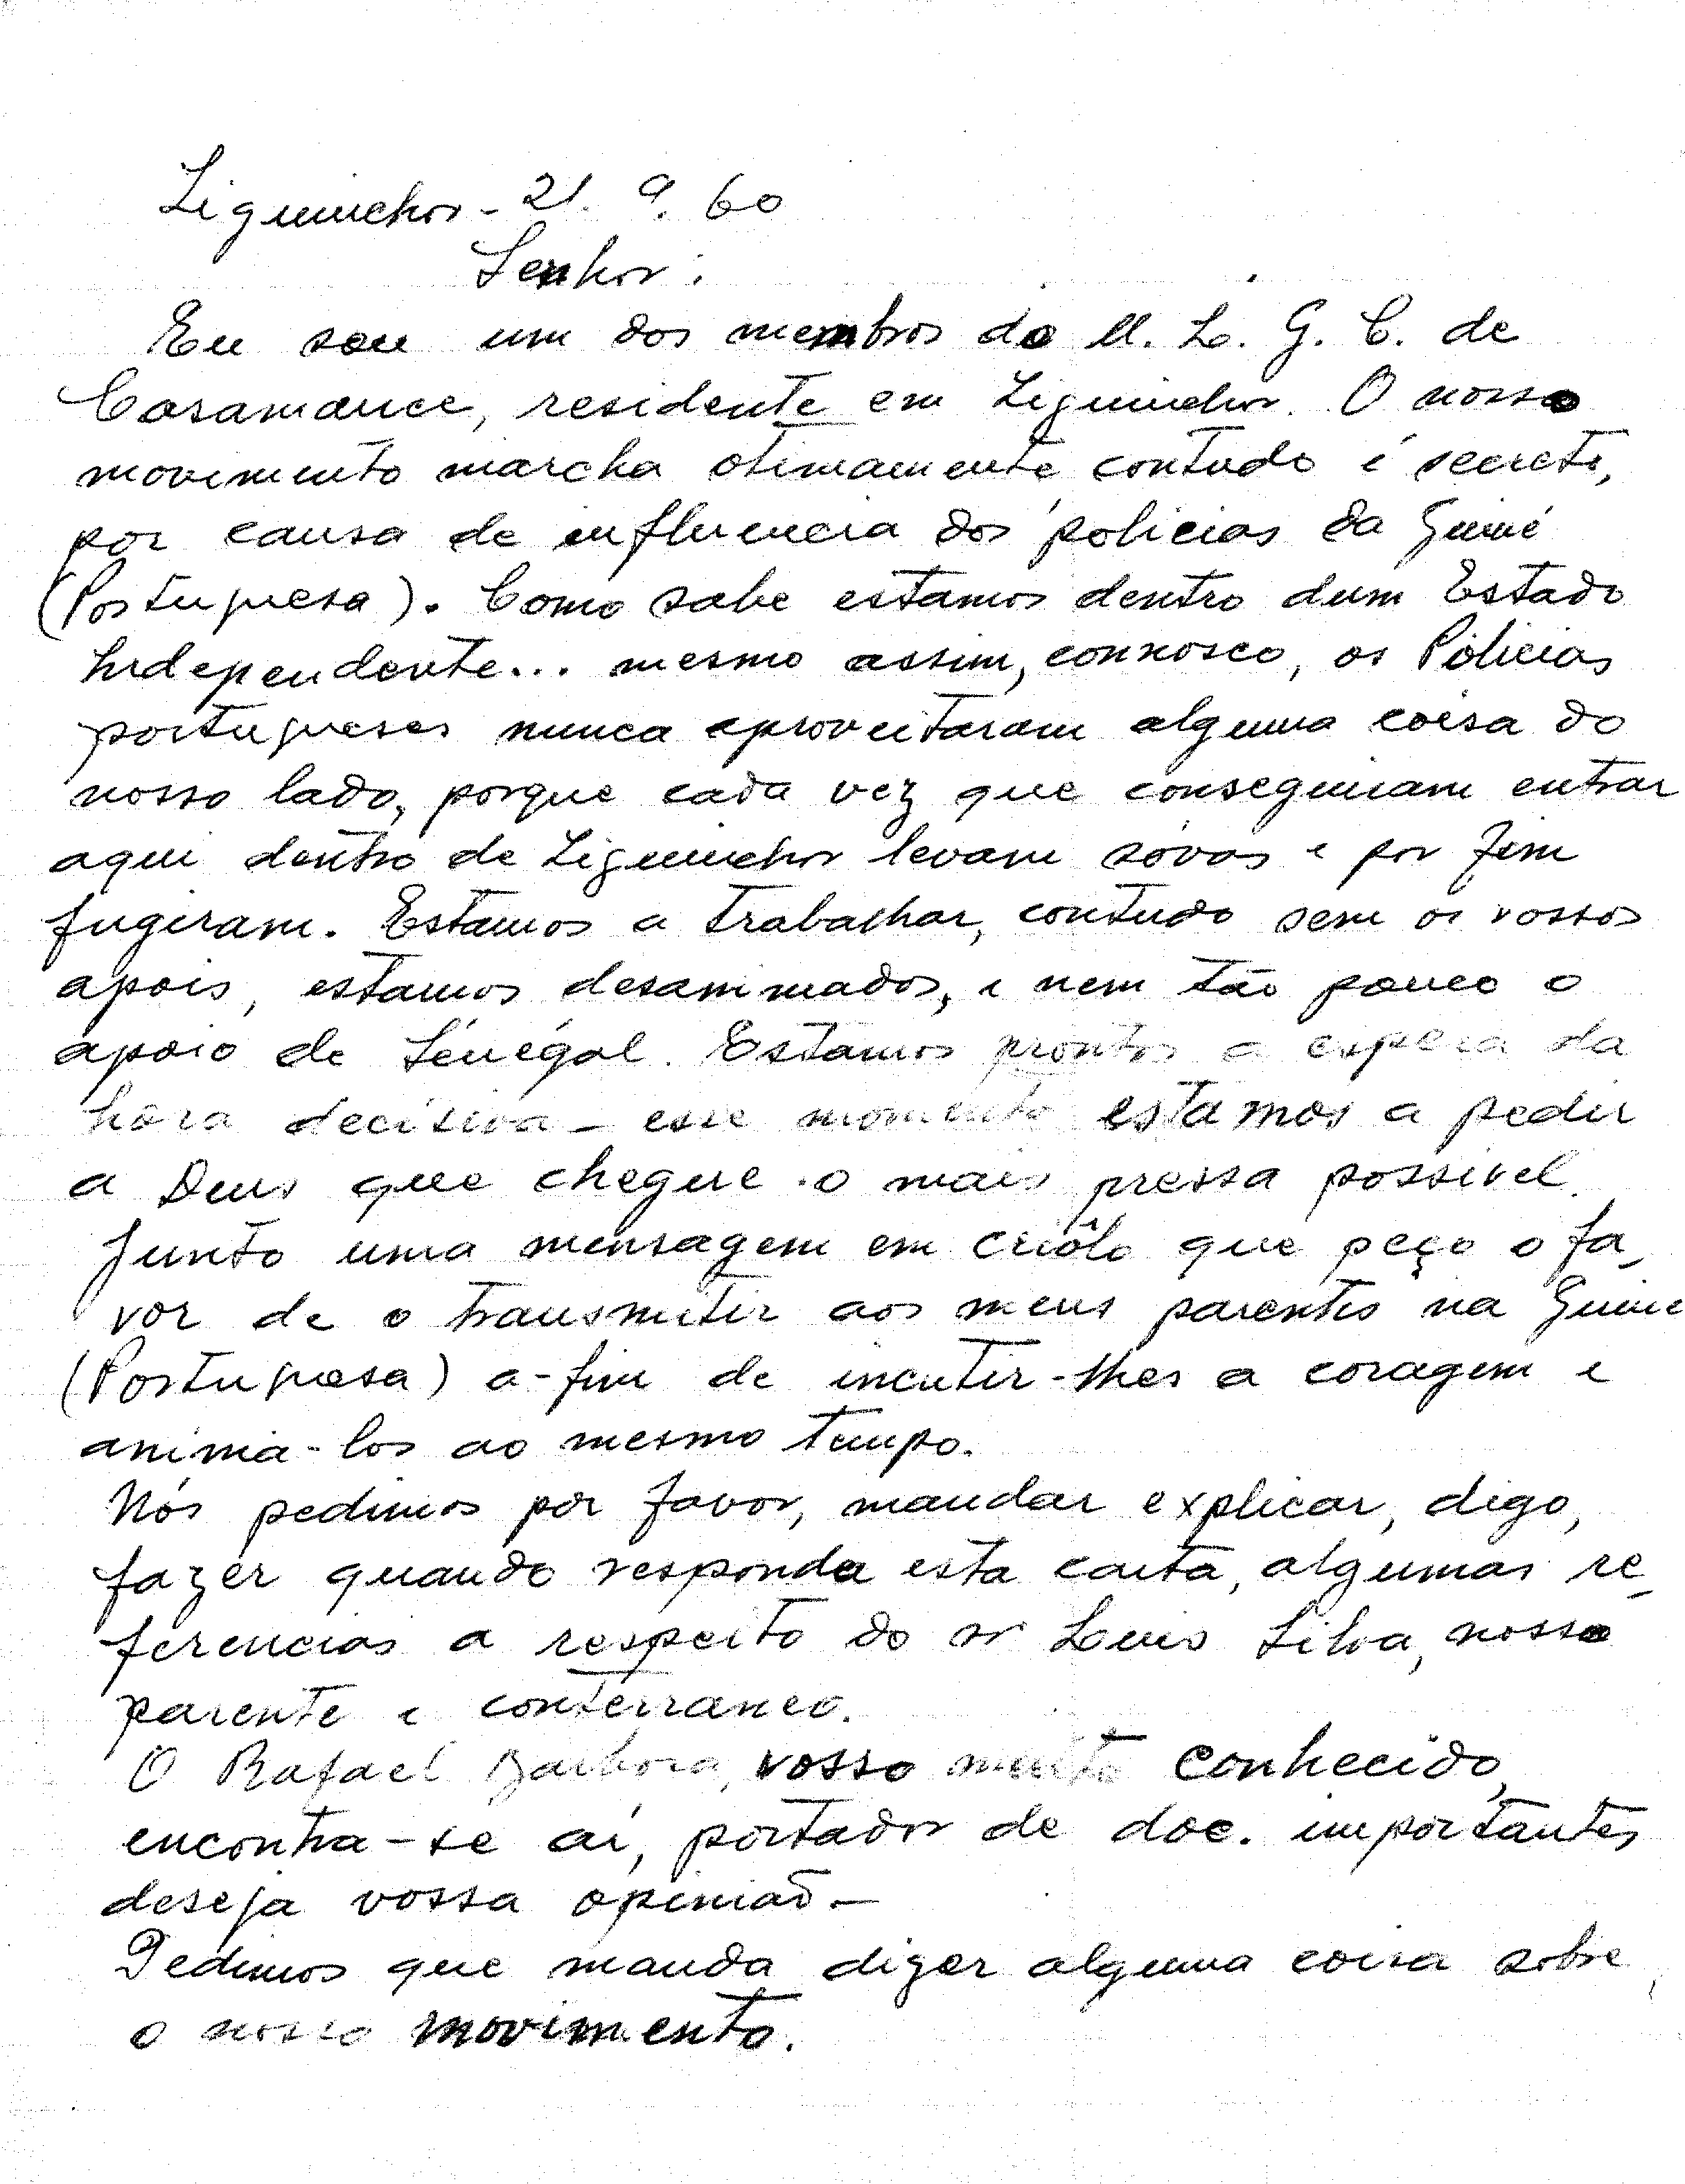 Ziguinchor - 21. 9. 60
Senhor:
Eu sou um dos membros do M. L. G. C. de
Casamance, residente em Ziguinchor. O nosso
movimento marcha otimamente contudo é secreto,
por causa de influencia dos policias da Guiné
(Portuguesa). Como sabe estamos dentro dum Estado
Independente... mesmo assim, connosco, os Policias
portugueses nunca aproveitaram alguma coisa do
nosso lado, porque cada vez que conseguiam entrar
aqui dentro de Ziguinchor levam sóvas e por fim
fugiram. Estamos a trabalhar, contudo sem os vossos
apois, estamos desanimados, e nem tão pouco o
apoio de Sénégal. Estamos prontos a espera da
hôra decisiva - esse momento estamos a pedir
a Deus que chegue o mais pressa possivel.
Junto uma mensagem em criôlo que peço o fa-
vor de o transmitir aos meus parentes na Guiné
(Portuguesa) a-fim de incutir-lhes a coragem e
animá-los ao mesmo tempo.
Nós pedimos por favor, mandar explicar, digo,
fazer quando responda esta carta, algumas re-
ferencias a respeito do sr Luis Silva, nosso
parente e conterraneo.
O Rafael Barbosa, vosso muito conhecido,
encontra-se aí, portador de doc. importantes
deseja vossa opinião -
Pedimos que manda dizer alguma coisa sobre
o nosso movimento.